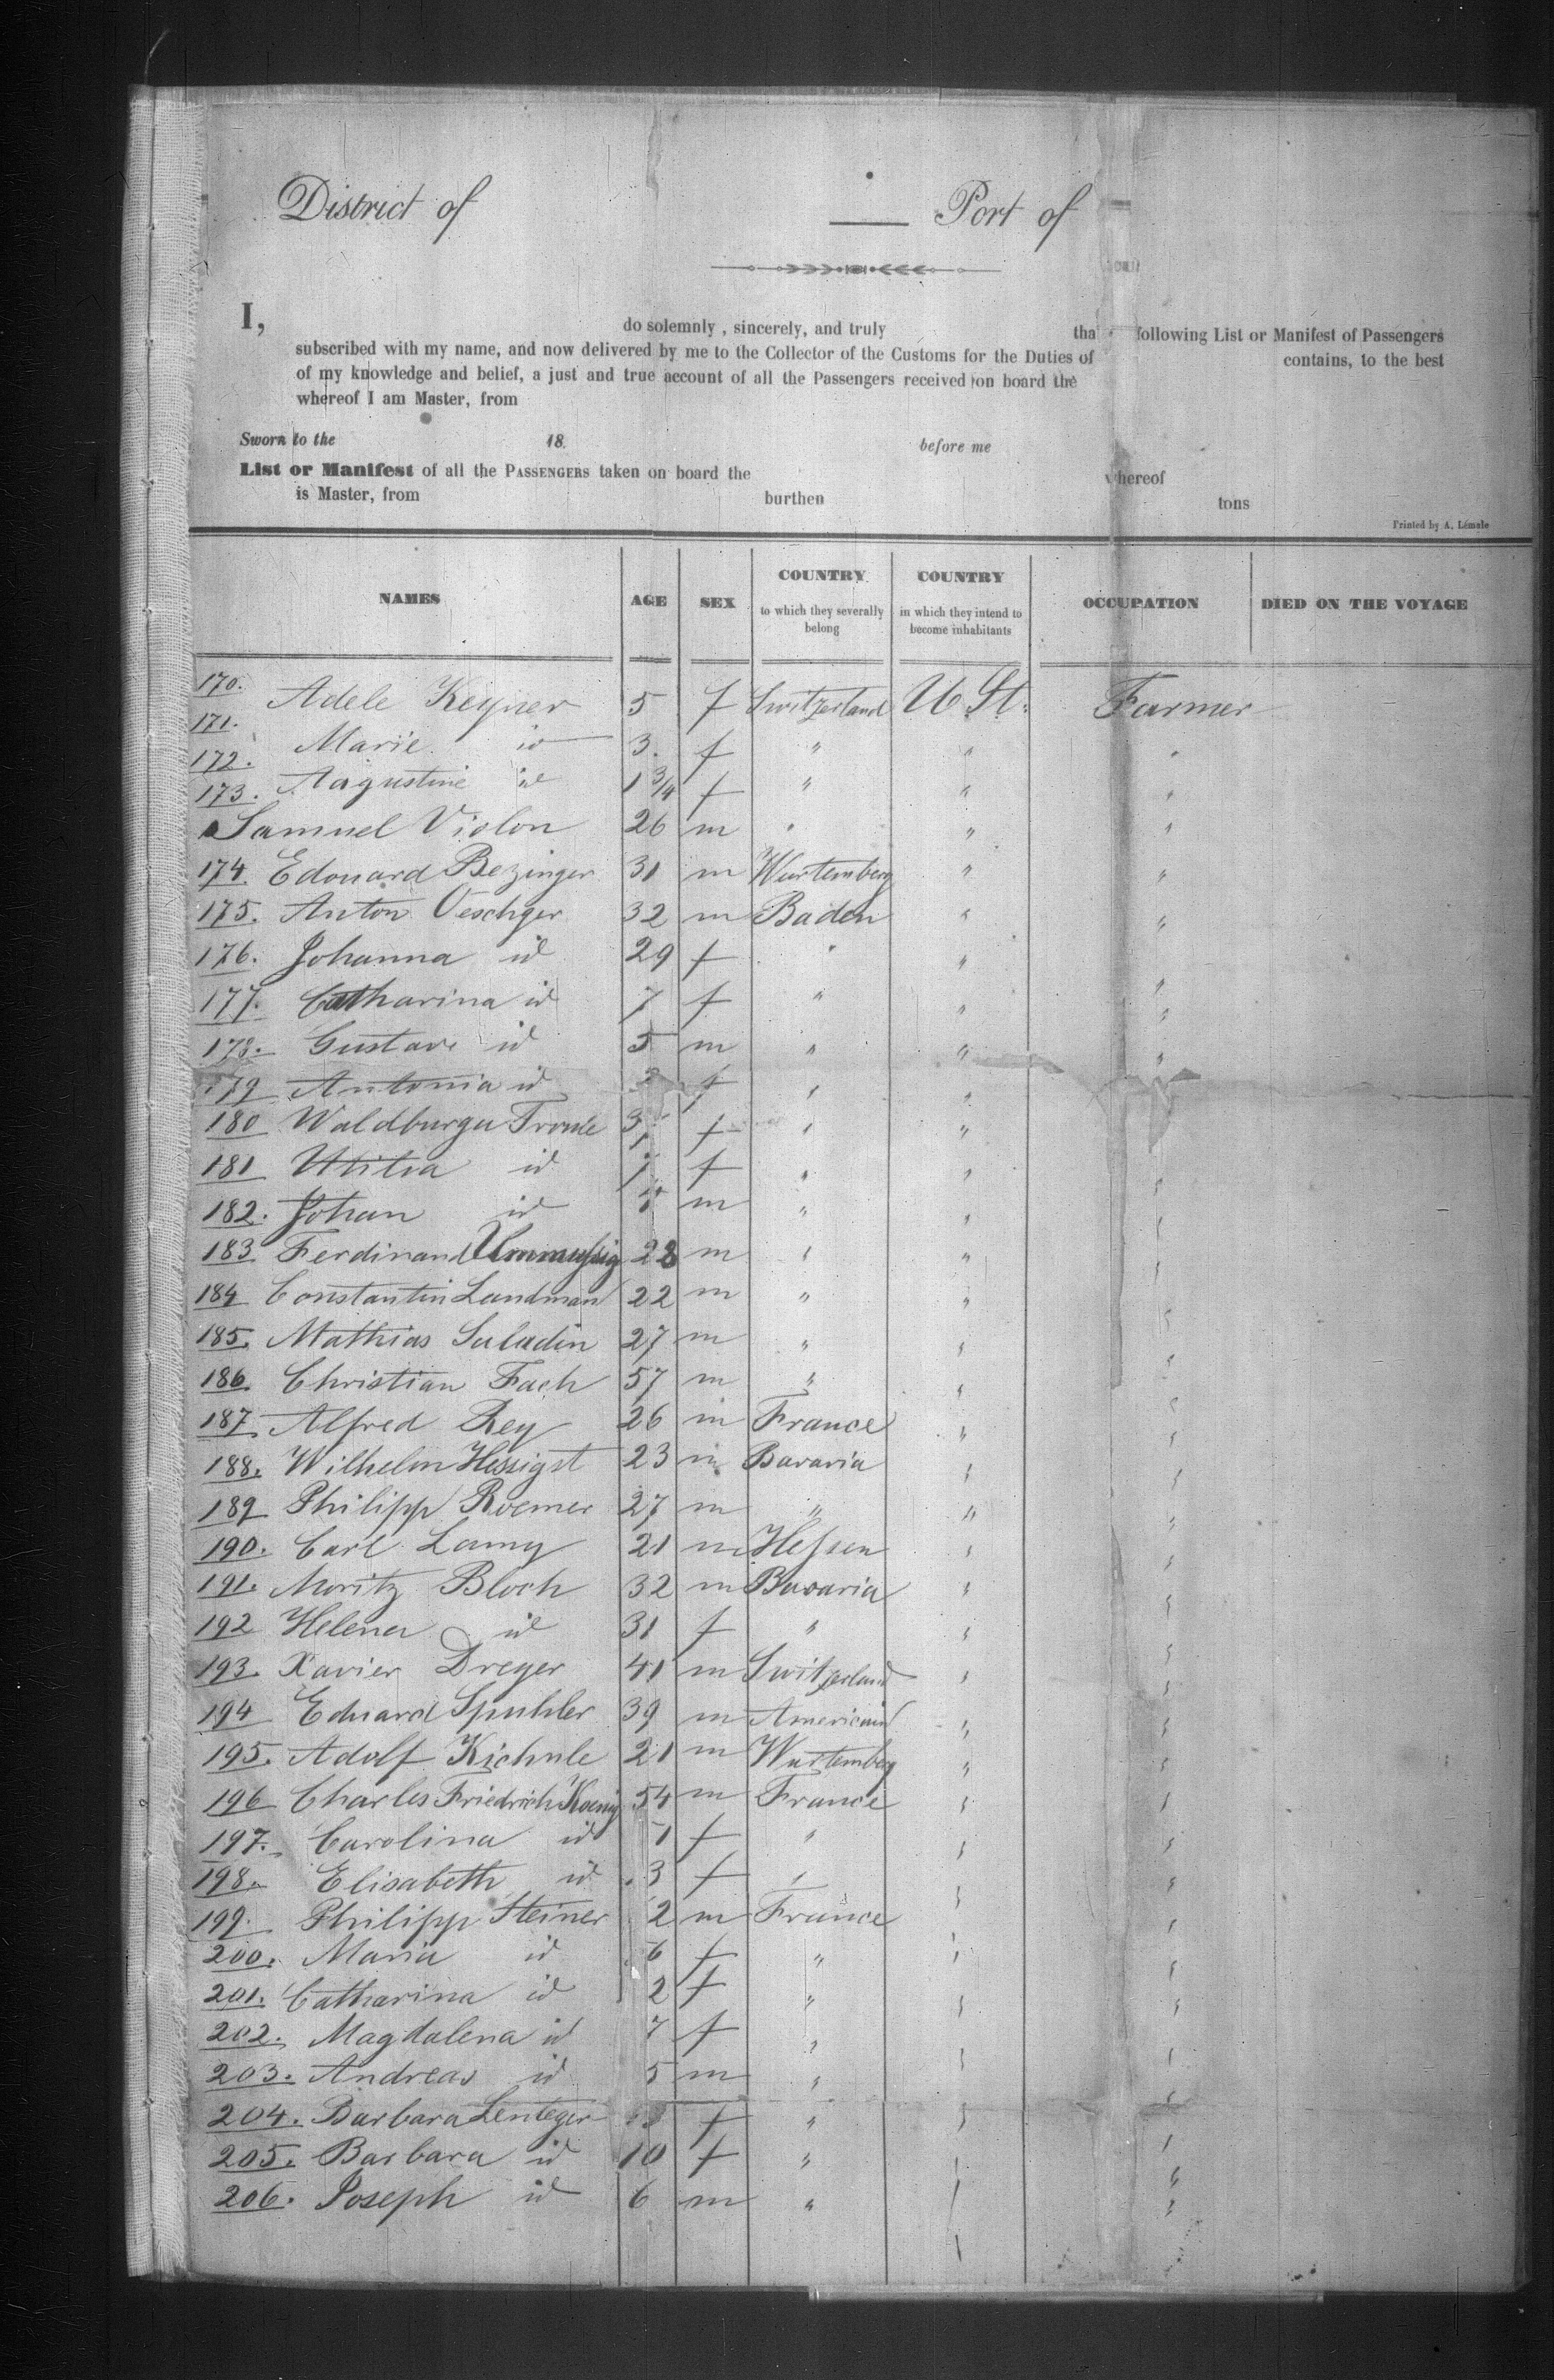 District of Port of
I, do solemnly, sincerely, and truly tha following List or Manifest of Passengers
subscribed with my name, and now delivered by me to the Collector of the Customs for the Duties of contains, to the best
of my knowledge and belief, a just and true account of all the Passengers received on board the
whereof I am Master, from
Sworn to the 18. before me
List or Manifest of all the PASSENGERS taken on board the whereof
is Master, from burthen tons
Printed by A. Lémale
NAMES AGE SEX COUNTRY to which they severally belong COUNTRY in which they intend to become inhabitants OCCUPATION DIED ON THE VOYAGE
170. Adele Keyner 5 f Switzerland U St. Farmer
171. Marie id 3. f " " "
172. Augustine id 1 3/4 f " " "
173. Samuel Violon 26 m " " "
174. Edouard Bezinger 31 m Wurtemberg " "
175. Anton Oeschger 32 m Baden " "
176. Johanna id 29 f " " "
177. Catharina id 7 f " " "
178. Gustave id 5 m " " "
179 Antonia id f " " "
180 Waldburga Tronle f " " "
181 id f " " "
182. Johan id m " " "
183 Ferdinand Ummussig 28 m " " "
184 Constantin Landman 22 m " " "
185. Mathias Saladin 27 m " " "
186. Christian Fach 57 m " " "
187. Alfred Rey 26 m France " "
188. Wilhelm Hessigst 23 m Bavaria " "
189 Philipp Roemer 27 m " " "
190. Carl Lamy 21 m Hessen " "
191. Moritz Bloch 32 m Bavaria " "
192 Helena id 31 f " " "
193. Xavier Dreyer 41 m Switzerland " "
194 Eduard Spuhler 39 m American " "
195. Adolf Kichnle 21 m Wurtemberg " "
196 Charles Friedrich Koenig 54 m France " "
197. Carolina id f " " "
198. Elisabeth id 3 f " " "
199. Philipp Steiner 2 m France " "
200. Maria id 6 f " " "
201. Catharina id 2 f " " "
202. Magdalena id 7 f " " "
203. Andreas id 5 m " " "
204. Barbara Lenteger f " " "
205. Barbara id 10 f " " "
206. Joseph id 6 m " " "